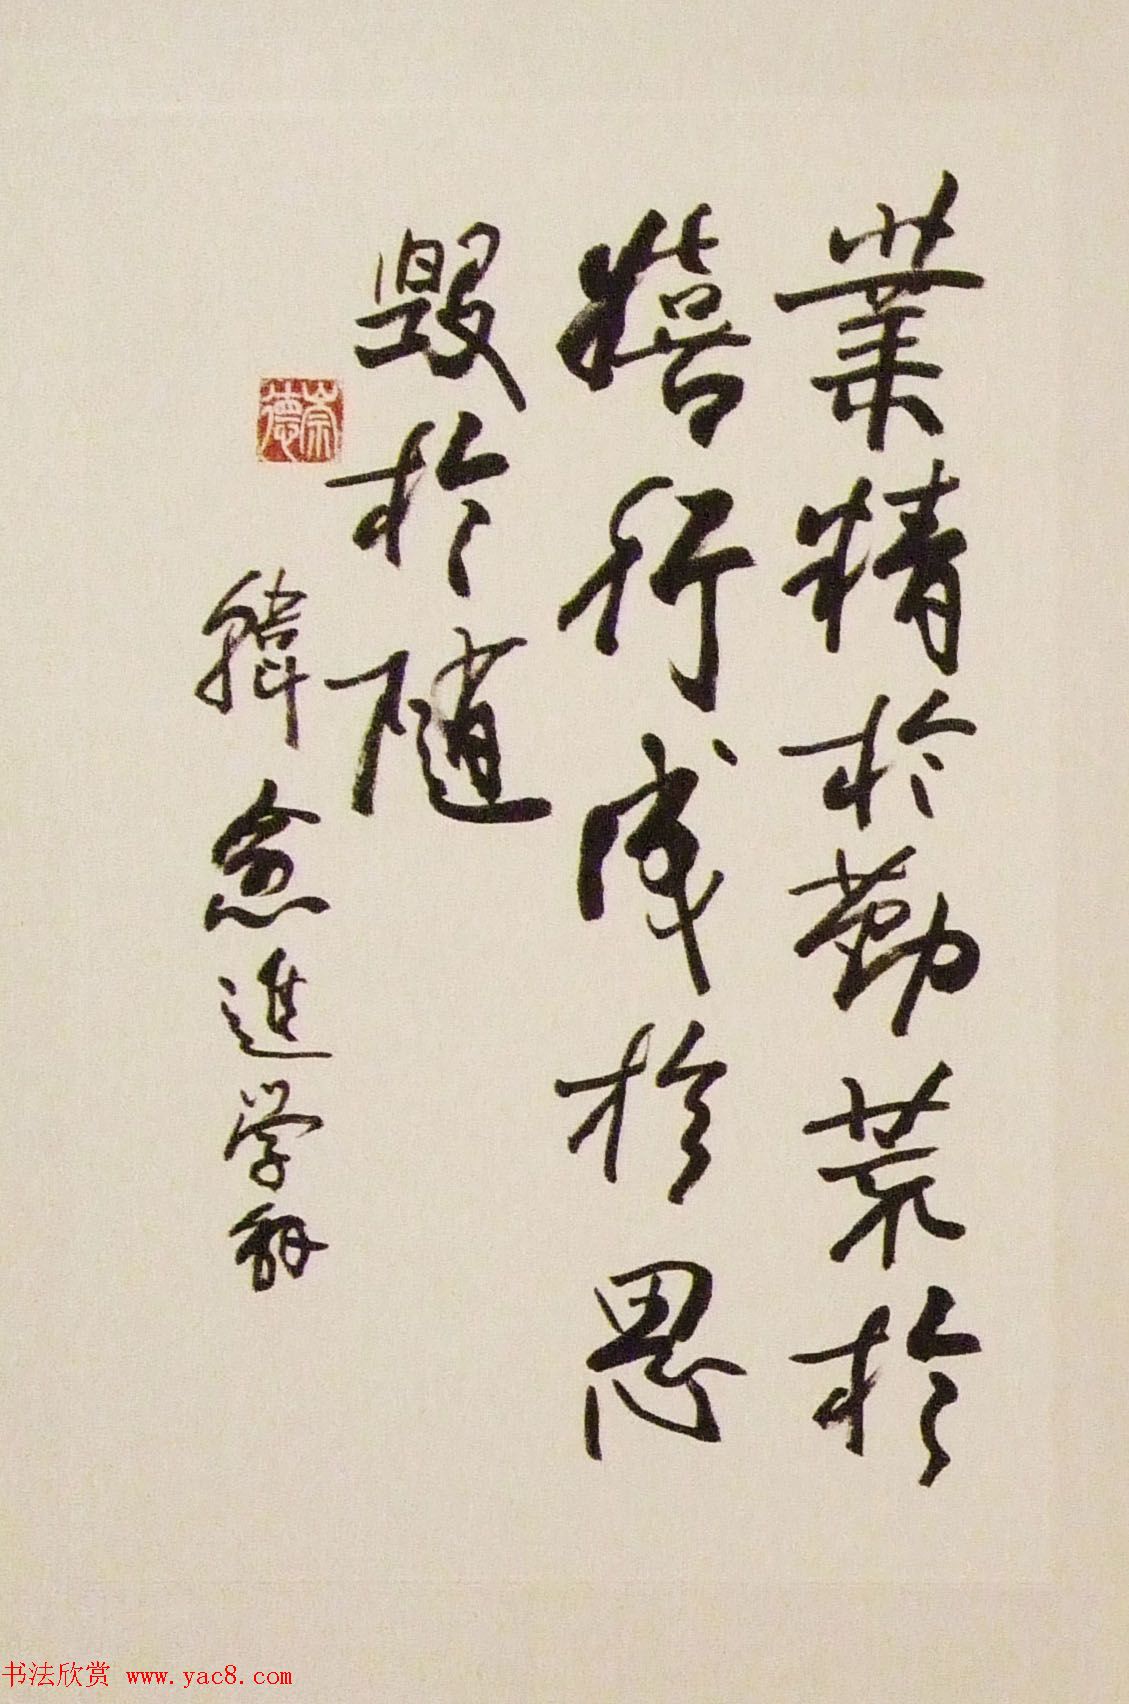 業精於勤荒於
嬉行成於思
毁於随
韓愈進学解
崇德
书法欣赏 www.yac8.com